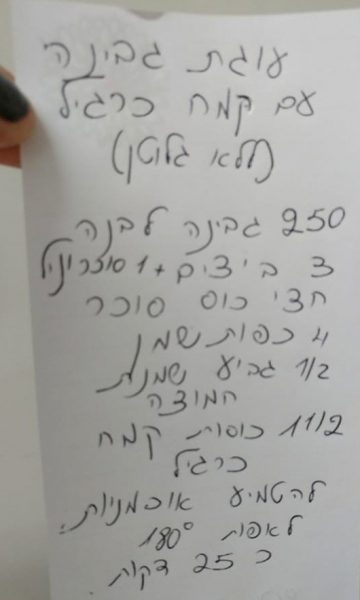 עוגת גבינה
עם קמח כרגיל
(ללא גלוטן)
250 גבינה לבנה
3 ביצים + 1 סוכר וניל
חצי כוס סוכר
4 כפות שמן
1/2 גביע שמנת
חמוצה
1 1/2 כוסות קמח
כרגיל
להטמיע אוכמניות.
לאפות 180°
כ 25 דקות.